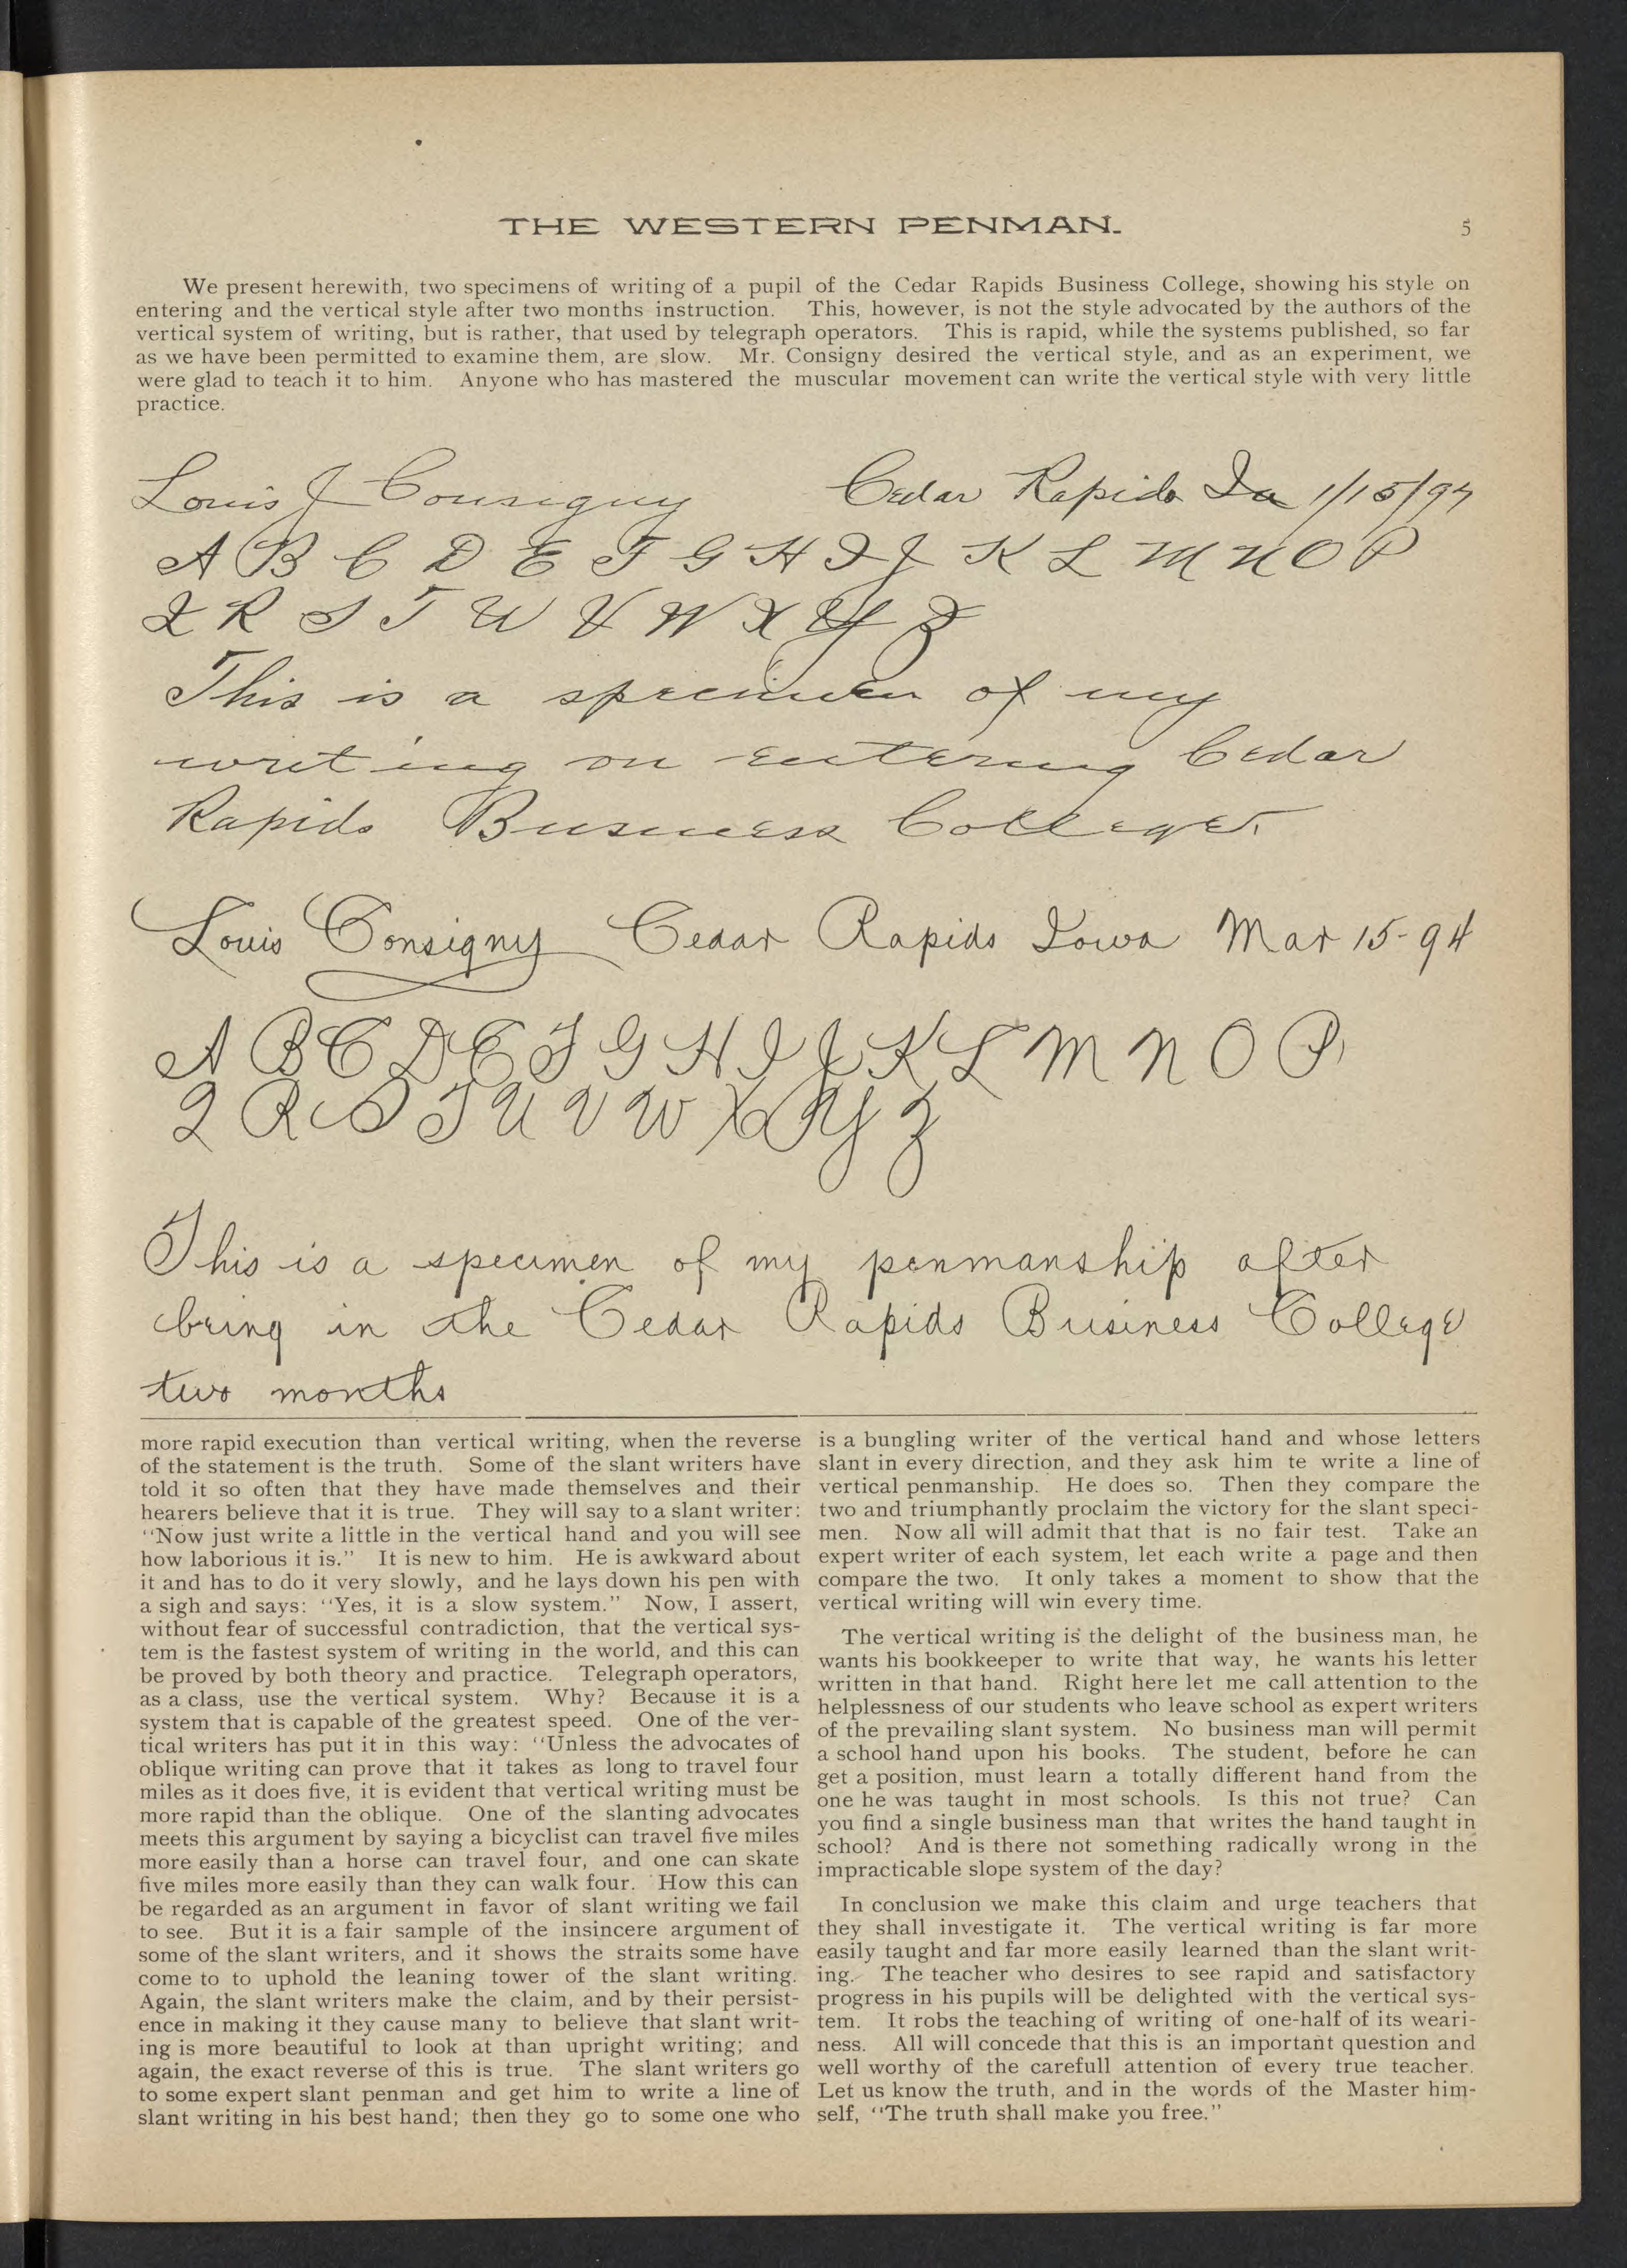 THE WESTERN PENMAN.
5
We present herewith, two specimens of writing of a pupil of the Cedar Rapids Business College, showing his style on
entering and the vertical style after two months instruction. This, however, is not the style advocated by the authors of the
vertical system of writing, but is rather, that used by telegraph operators. This is rapid, while the systems published, so far
as we have been permitted to examine them, are slow. Mr. Consigny desired the vertical style, and as an experiment, we
were glad to teach it to him. Anyone who has mastered the muscular movement can write the vertical style with very little
practice.
Louis J Consigny Cedar Rapids Ia 1/15/94
A B C D E F G H I J K L M N O P
Q R S T U V W X Y Z
This is a specimen of my
writing on entering Cedar
Rapids Business College.
Louis Consigny Cedar Rapids Iowa Mar 15-94
A B C D E F G H I J K L M N O P
Q R S T U V W X Y Z
This is a specimen of my penmanship after
being in the Cedar Rapids Business College
two months
more rapid execution than vertical writing, when the reverse
of the statement is the truth. Some of the slant writers have
told it so often that they have made themselves and their
hearers believe that it is true. They will say to a slant writer:
"Now just write a little in the vertical hand and you will see
how laborious it is." It is new to him. He is awkward about
it and has to do it very slowly, and he lays down his pen with
a sigh and says: "Yes, it is a slow system." Now, I assert,
without fear of successful contradiction, that the vertical sys-
tem is the fastest system of writing in the world, and this can
be proved by both theory and practice. Telegraph operators,
as a class, use the vertical system. Why? Because it is a
system that is capable of the greatest speed. One of the ver-
tical writers has put it in this way: "Unless the advocates of
oblique writing can prove that it takes as long to travel four
miles as it does five, it is evident that vertical writing must be
more rapid than the oblique. One of the slanting advocates
meets this argument by saying a bicyclist can travel five miles
more easily than a horse can travel four, and one can skate
five miles more easily than they can walk four. How this can
be regarded as an argument in favor of slant writing we fail
to see. But it is a fair sample of the insincere argument of
some of the slant writers, and it shows the straits some have
come to to uphold the leaning tower of the slant writing.
Again, the slant writers make the claim, and by their persist-
ence in making it they cause many to believe that slant writ-
ing is more beautiful to look at than upright writing; and
again, the exact reverse of this is true. The slant writers go
to some expert slant penman and get him to write a line of
slant writing in his best hand; then they go to some one who
is a bungling writer of the vertical hand and whose letters
slant in every direction, and they ask him te write a line of
vertical penmanship. He does so. Then they compare the
two and triumphantly proclaim the victory for the slant speci-
men. Now all will admit that that is no fair test. Take an
expert writer of each system, let each write a page and then
compare the two. It only takes a moment to show that the
vertical writing will win every time.
The vertical writing is the delight of the business man, he
wants his bookkeeper to write that way, he wants his letter
written in that hand. Right here let me call attention to the
helplessness of our students who leave school as expert writers
of the prevailing slant system. No business man will permit
a school hand upon his books. The student, before he can
get a position, must learn a totally different hand from the
one he was taught in most schools. Is this not true? Can
you find a single business man that writes the hand taught in
school? And is there not something radically wrong in the
impracticable slope system of the day?
In conclusion we make this claim and urge teachers that
they shall investigate it. The vertical writing is far more
easily taught and far more easily learned than the slant writ-
ing. The teacher who desires to see rapid and satisfactory
progress in his pupils will be delighted with the vertical sys-
tem. It robs the teaching of writing of one-half of its weari-
ness. All will concede that this is an important question and
well worthy of the carefull attention of every true teacher.
Let us know the truth, and in the words of the Master him-
self, "The truth shall make you free."